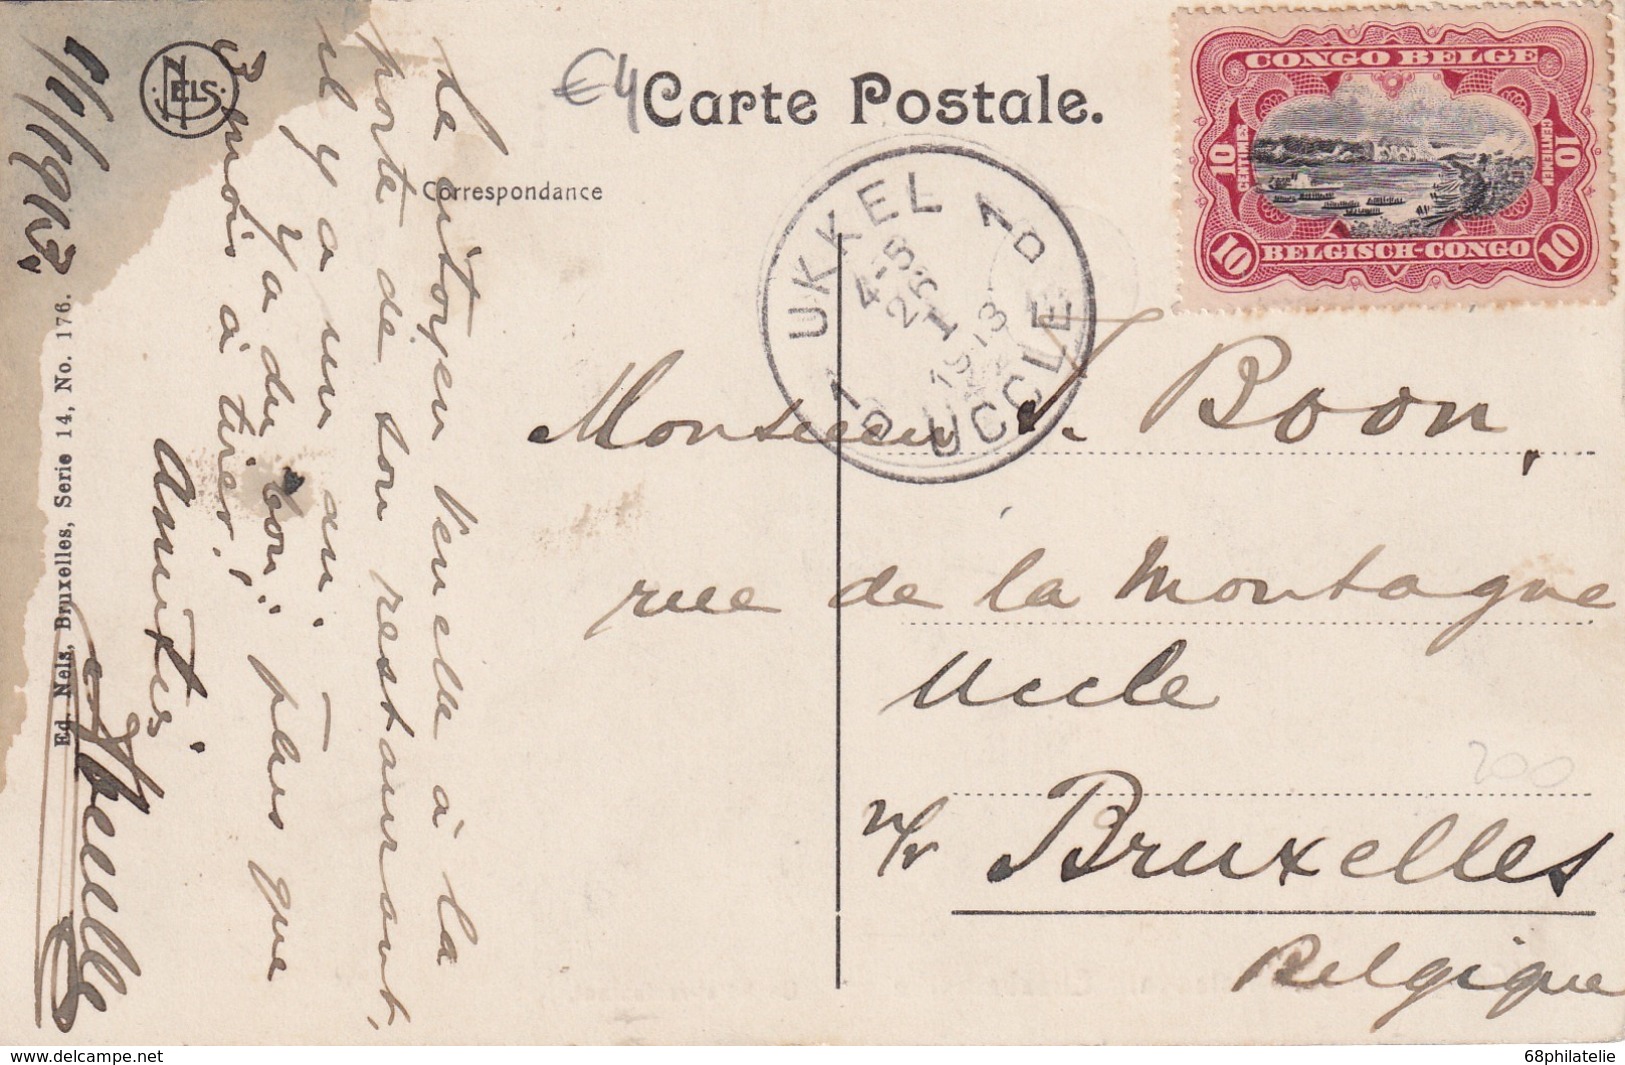 €4
Carte Postale.
Correspondance
NELS
CONGO BELGE
10 CENTIMES
10 CENTIEMEN
BELGISCH-CONGO
10
10
UKKEL 1D
4-5
26
I
1913
UCCLE 1D
Le citoyen Venelle à la
porte de son restaurant,
il y a un an.
Y a du bon!! plus que
3 mois à tirer!
Amitiés
Ed. Nels, Bruxelles, Serie 14, No. 176.
Monsieur J. Boon,
rue de la Montagne
Uccle
n/r Bruxelles
Belgique
200
www.delcampe.net
68philatelie